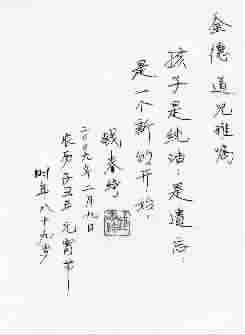 金德道兄雅嘱
孩子是纯洁，是遗忘，
是一个新的开始。
钱春绮
二〇〇九年二月九日
农历己丑年元宵节
时年八十九岁